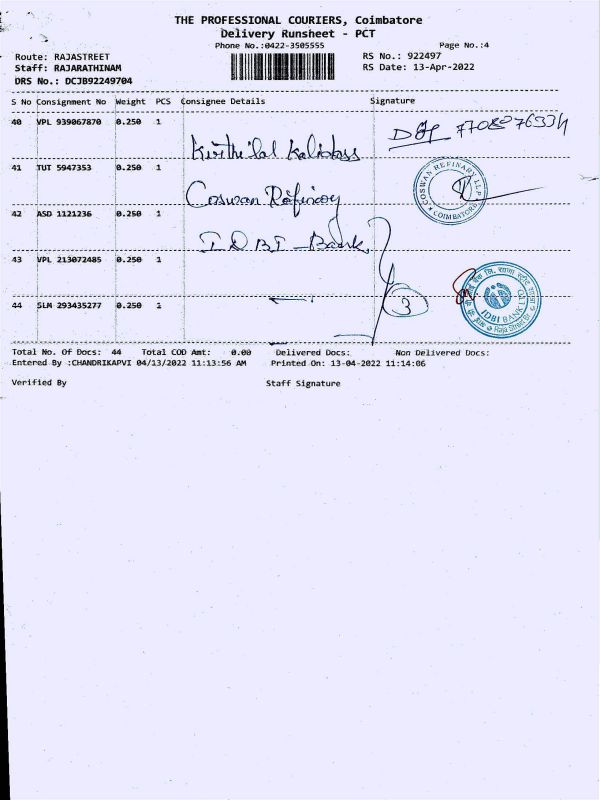 THE PROFESSIONAL COURIERS, Coimbatore
Delivery Runsheet - PCT
Phone No.:0422-3505555 Page No.:4
Route: RAJASTREET RS No.: 922497
Staff: RAJARATHINAM RS Date: 13-Apr-2022
DRS No.: DCJB92249704
S No Consignment No Weight PCS Consignee Details Signature
40 VPL 939067870 0.250 1
Kirthilal Kalidass
41 TUT 5947353 0.250 1
COSWAN REFINARY LLP
* COIMBATORE *
Coswan Refinary
42 ASD 1121236 0.250 1
IDBI Bank
43 VPL 213072485 0.250 1
IDBI BANK LTD
44 SLM 293435277 0.250 1
3
Total No. Of Docs: 44 Total COD Amt: 0.00 Delivered Docs: Non Delivered Docs:
Entered By :CHANDRIKAPVI 04/13/2022 11:13:56 AM Printed On: 13-04-2022 11:14:06
Verified By Staff Signature